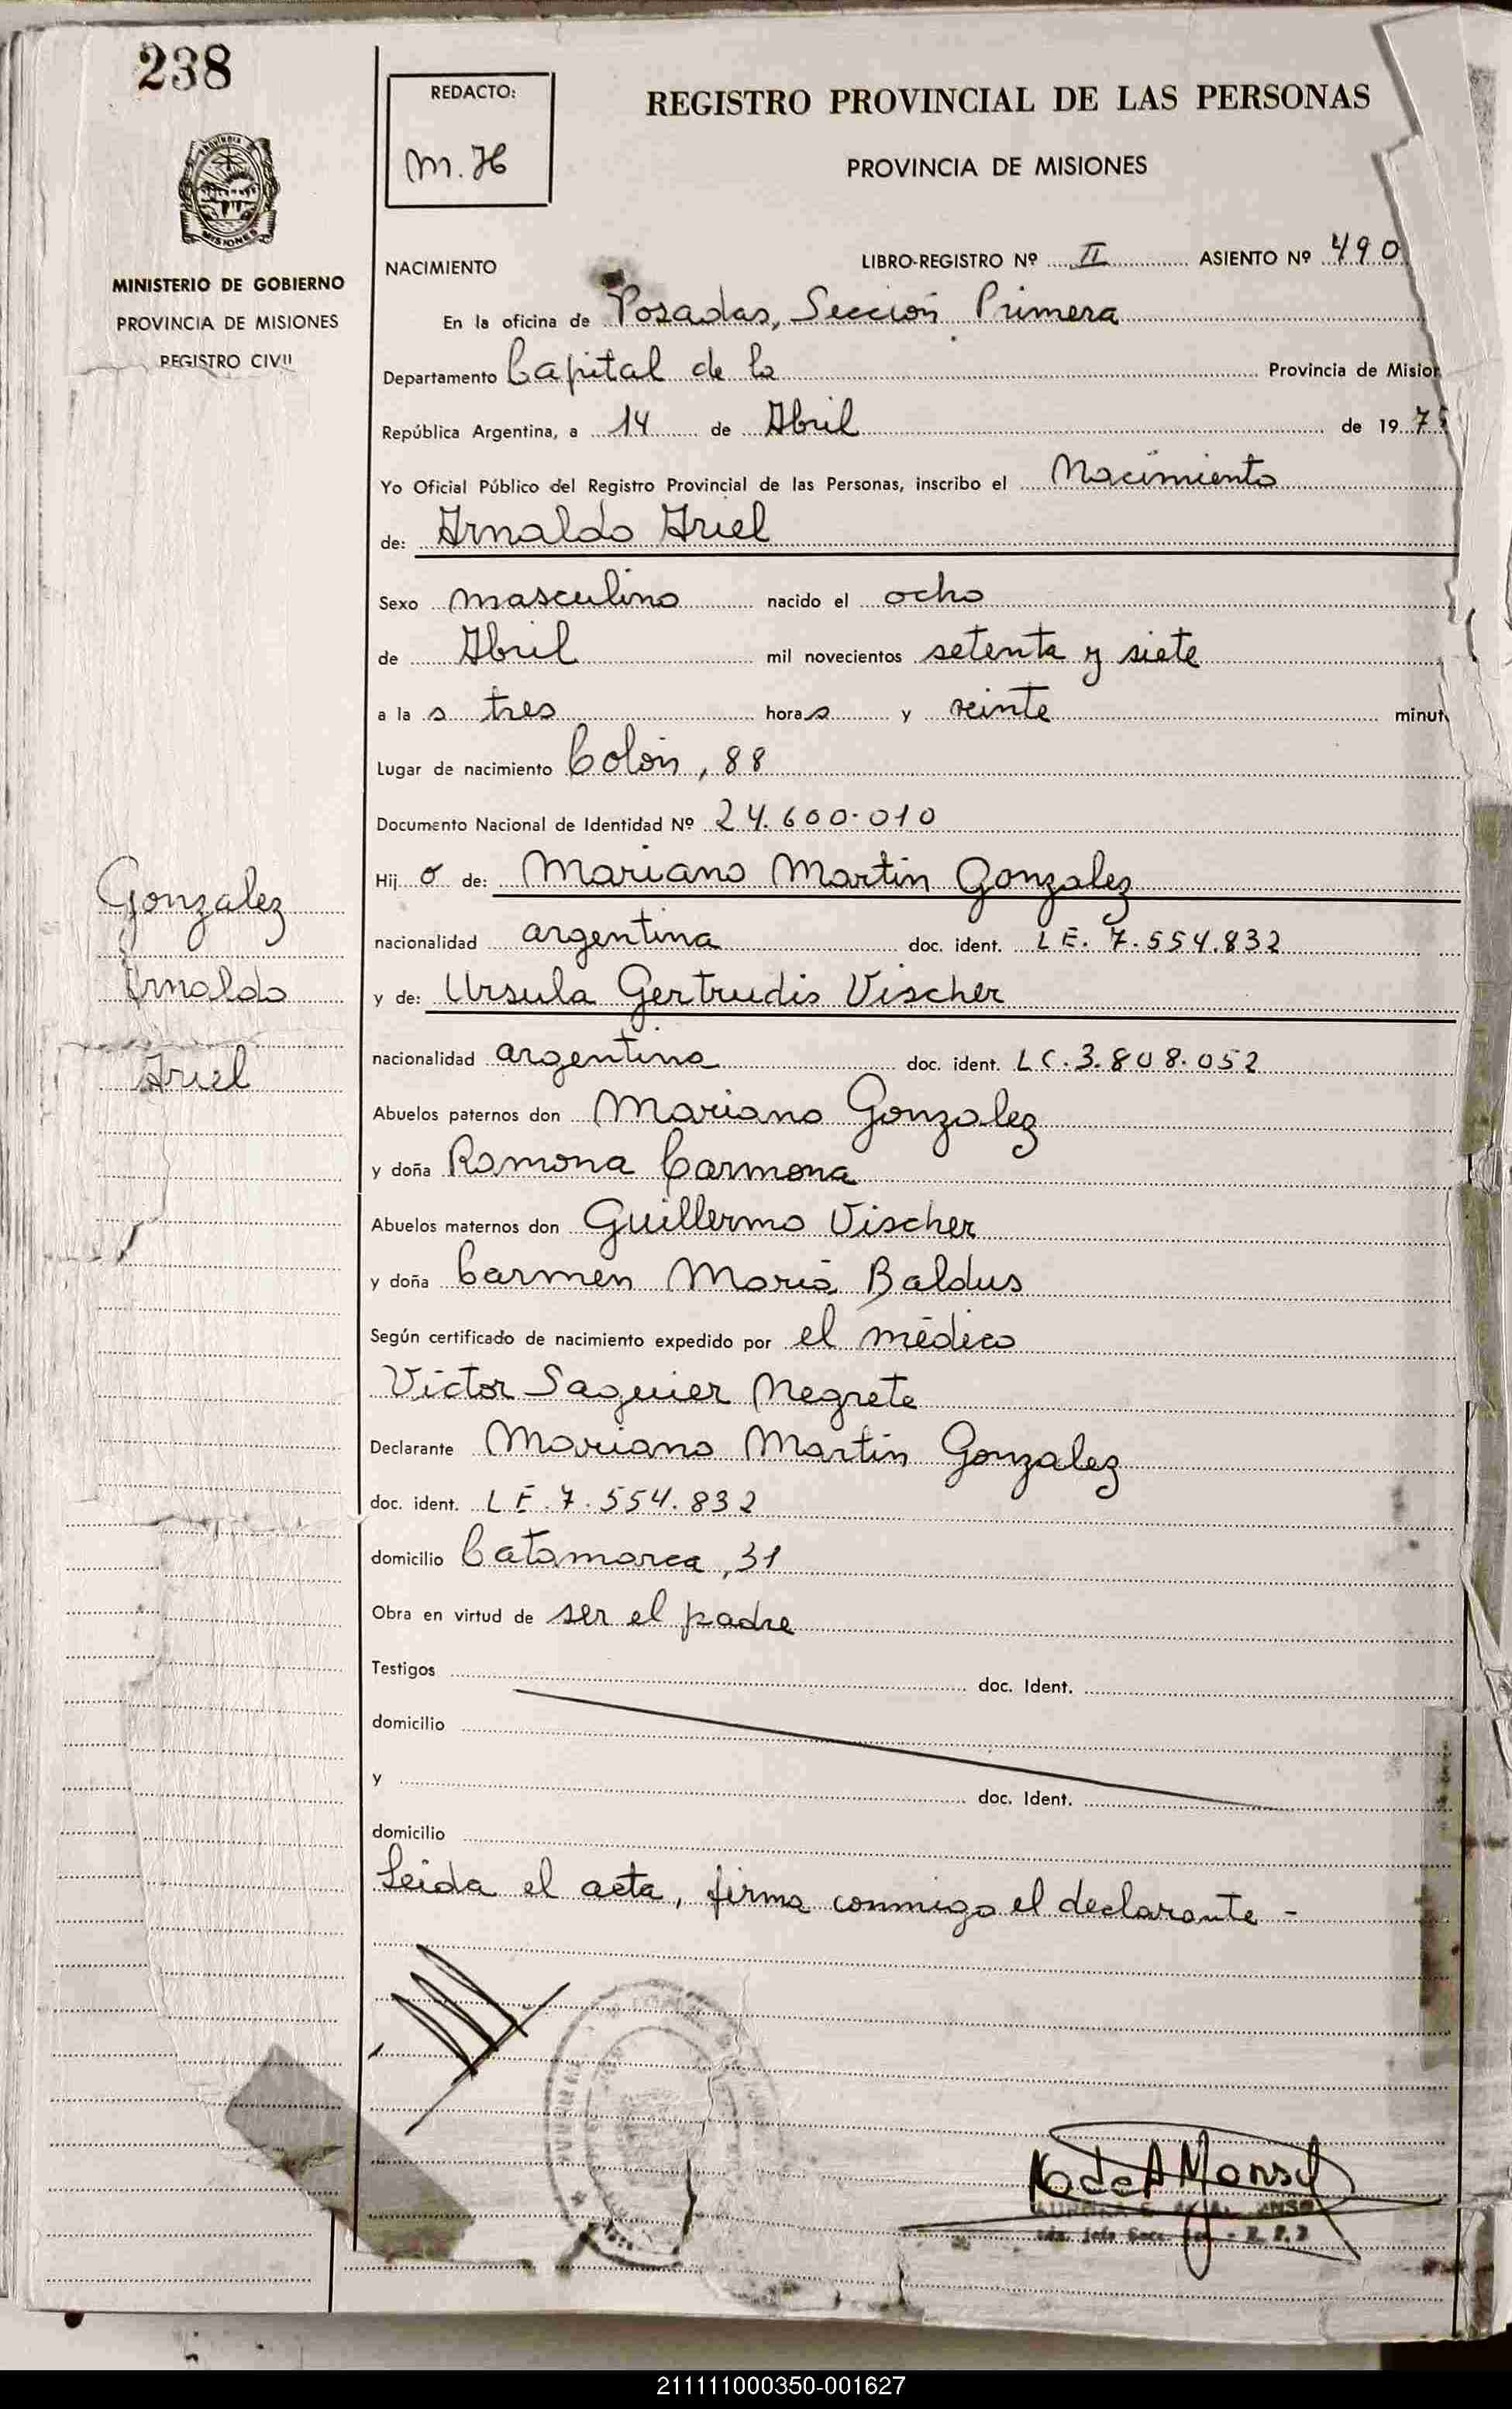 238
REDACTO:
M. H
REGISTRO PROVINCIAL DE LAS PERSONAS
PROVINCIA DE MISIONES
MISIONES
MINISTERIO DE GOBIERNO
PROVINCIA DE MISIONES
REGISTRO CIVIL
NACIMIENTO
LIBRO-REGISTRO Nº II ASIENTO Nº 490
En la oficina de Posadas, Sección Primera
Departamento Capital de la Provincia de Mision
República Argentina, a 14 de Abril de 19 7
Yo Oficial Público del Registro Provincial de las Personas, inscribo el Nacimiento
de: Arnaldo Ariel
Sexo masculino nacido el ocho
de Abril mil novecientos setenta y siete
a la s tres hora s y veinte minut
Lugar de nacimiento Colón, 88
Documento Nacional de Identidad Nº 24.600.010
Hij o de: Mariano Martin Gonzalez
nacionalidad argentina doc. ident. L E. 7.554.832
y de: Ursula Gertrudis Vischer
nacionalidad argentina doc. ident. L C. 3.808.052
Gonzalez
Arnaldo
Ariel
Abuelos paternos don Mariano Gonzalez
y doña Ramona Carmona
Abuelos maternos don Guillermo Vischer
y doña Carmen Maria Baldus
Según certificado de nacimiento expedido por el médico
Victor Saguier Negrete
Declarante Mariano Martin Gonzalez
doc. ident. L E. 7.554.832
domicilio Catamarca, 31
Obra en virtud de ser el padre
Testigos doc. Ident.
domicilio
y doc. Ident.
domicilio
Leida el acta, firma conmigo el declarante -
211111000350-001627